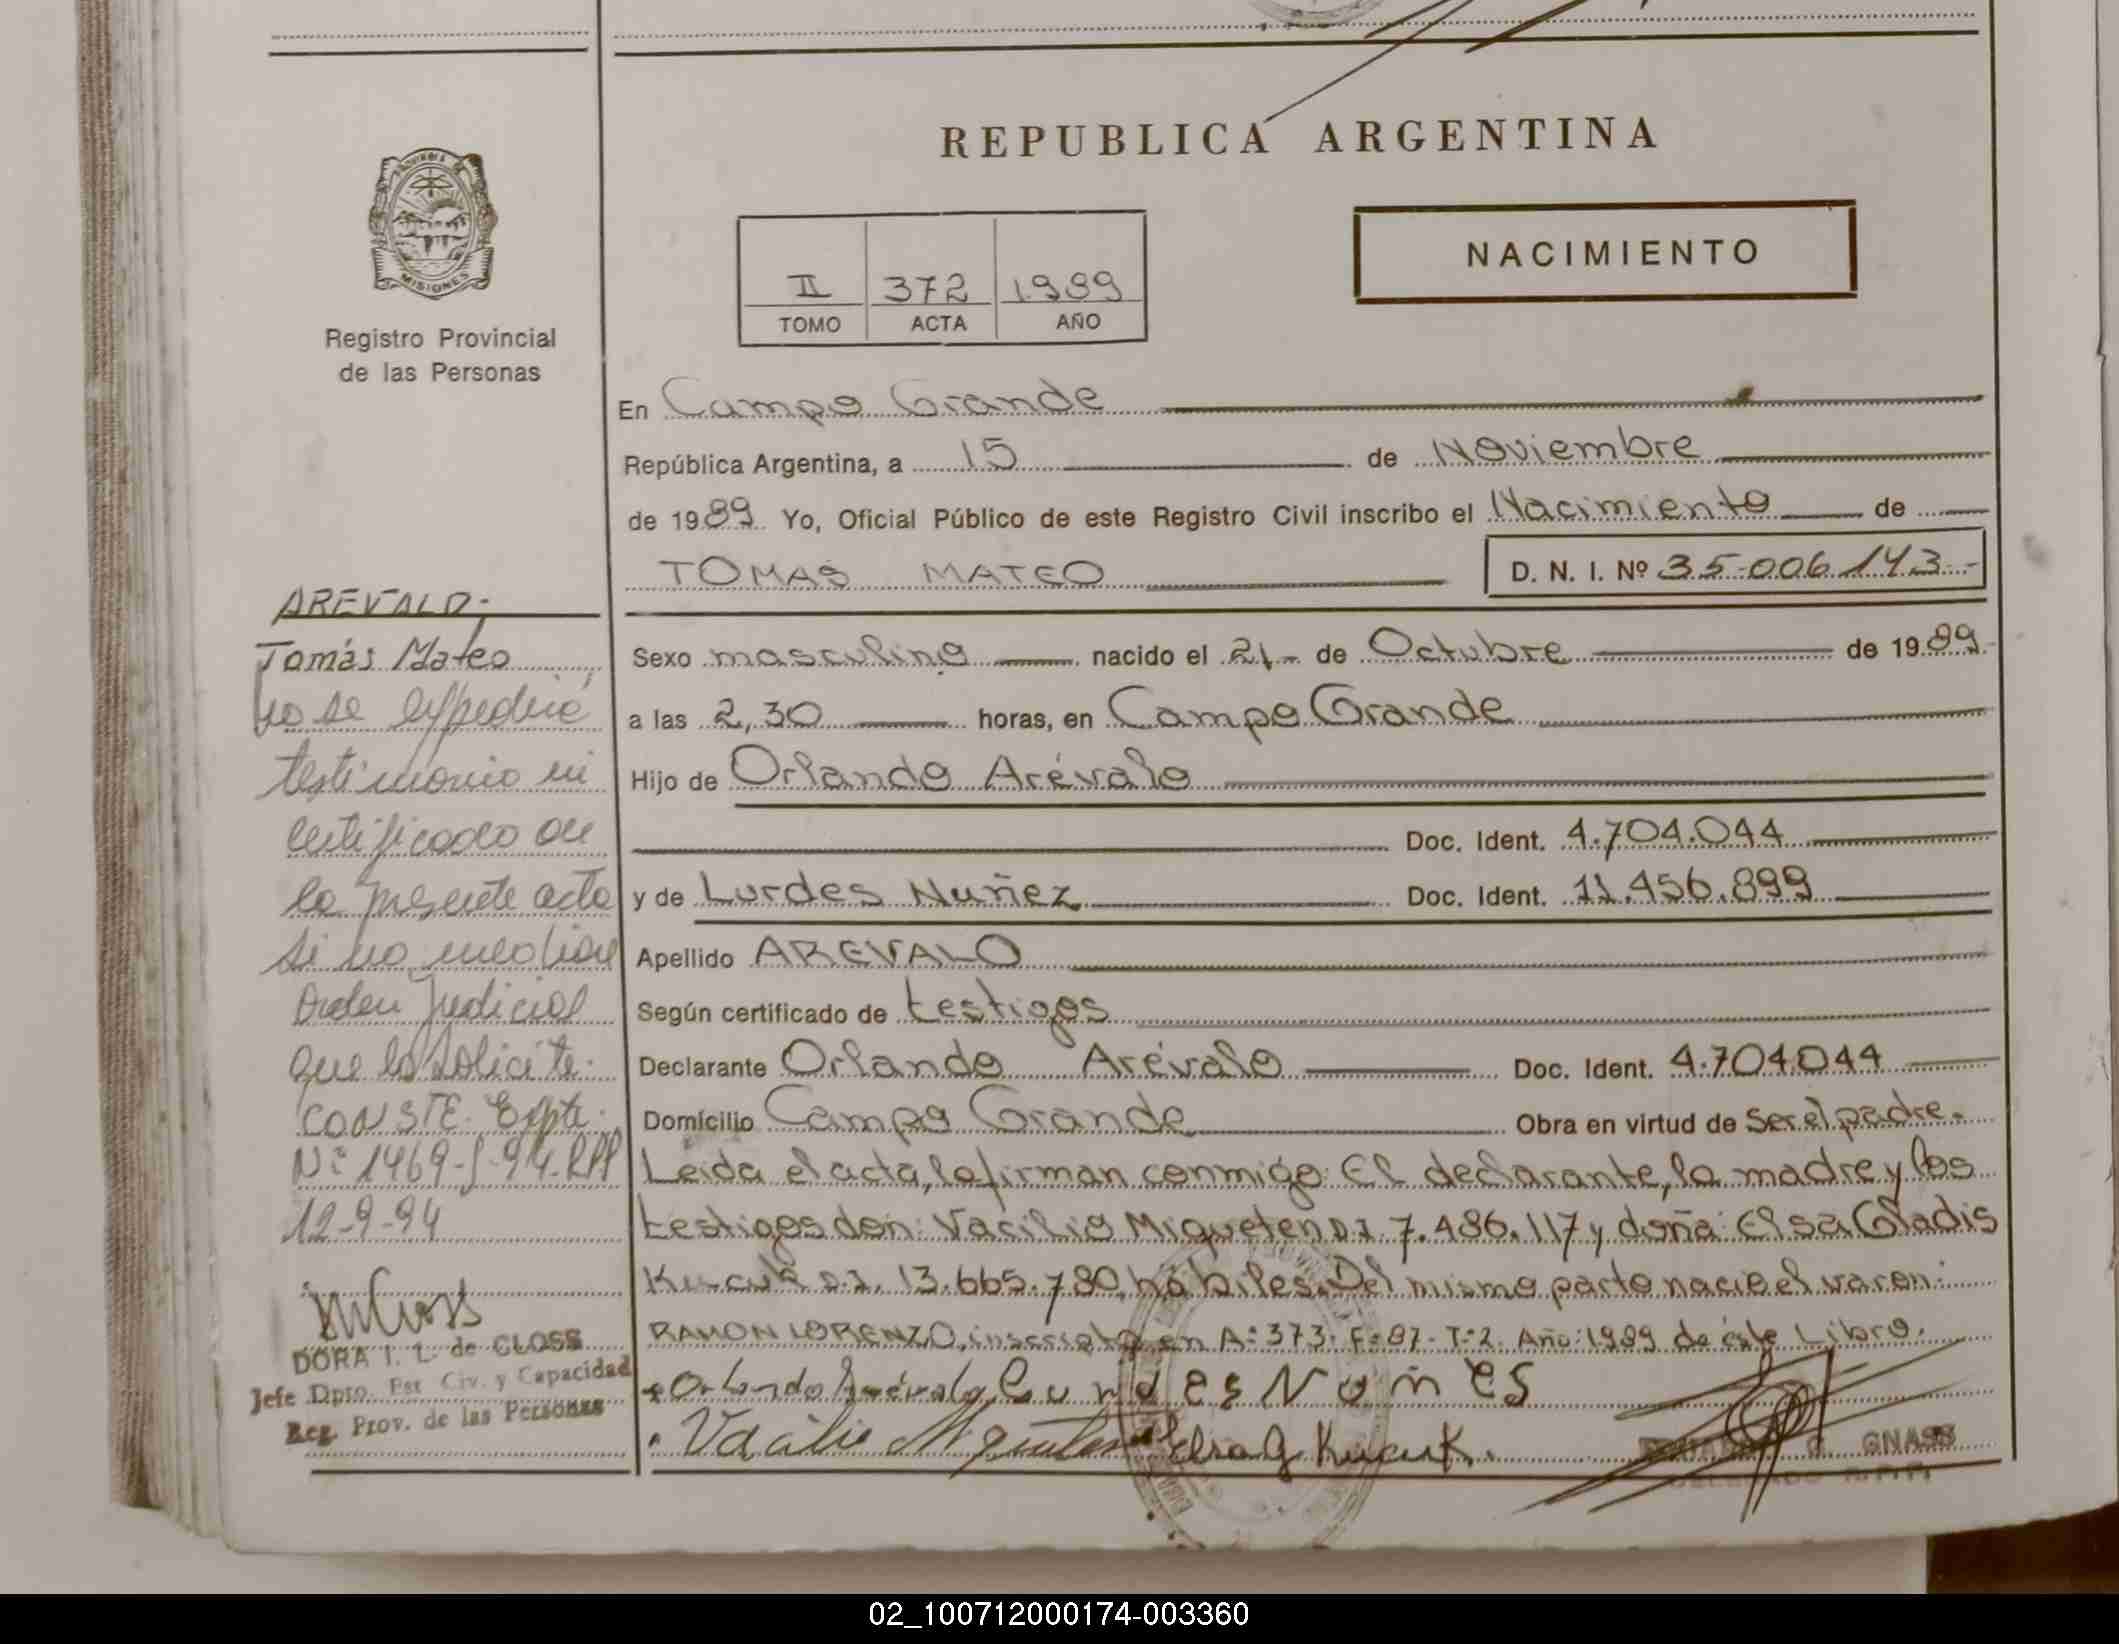 REPUBLICA ARGENTINA
NACIMIENTO
II 372 1989
TOMO ACTA AÑO
PROVINCIA DE
MISIONES
Registro Provincial
de las Personas
En Campo Grande
República Argentina, a 15 de Noviembre
de 1989 Yo, Oficial Público de este Registro Civil inscribo el Nacimiento de
TOMAS MATEO D. N. I. Nº 35.006.143.-
Sexo masculino nacido el 21- de Octubre de 1989.
a las 2,30 horas, en Campo Grande
Hijo de Orlando Arévalo
Doc. Ident. 4.704.044
y de Lurdes Nuñez Doc. Ident. 11.456.899
Apellido AREVALO
Según certificado de testigos
Declarante Orlando Arévalo Doc. Ident. 4.704.044
Domicilio Campo Grande Obra en virtud de ser el padre.
Leida el acta, la firman conmigo: El declarante, la madre y los
testigos don: Vacilio Migueten D.I. 7.486.117 y doña: Elsa Gladis
Kucuk D.I. 13.665.780, hábiles. Del mismo parto nacio el varon:
RAMON LORENZO, inscripto en A: 373. F: 87. T: 2. Año: 1989 de éste Libro.
Orlando Arévalo Lurdes Nuñes
Vacilio Elsa G Kucuk.
GNASS
DELEGADO R.P.P.
AREVALO.
Tomás Mateo
no se expedirá
testimonio ni
certificado de
la presente acta
si no mediare
Orden Judicial
que lo solicite.
CONSTE. Expte.
Nº 1469-J-94-RPP
12-9-94
DORA I. L. de CLOSS
Jefe Dpto. Est. Civ. y Capacidad
Reg. Prov. de las Personas
02_100712000174-003360